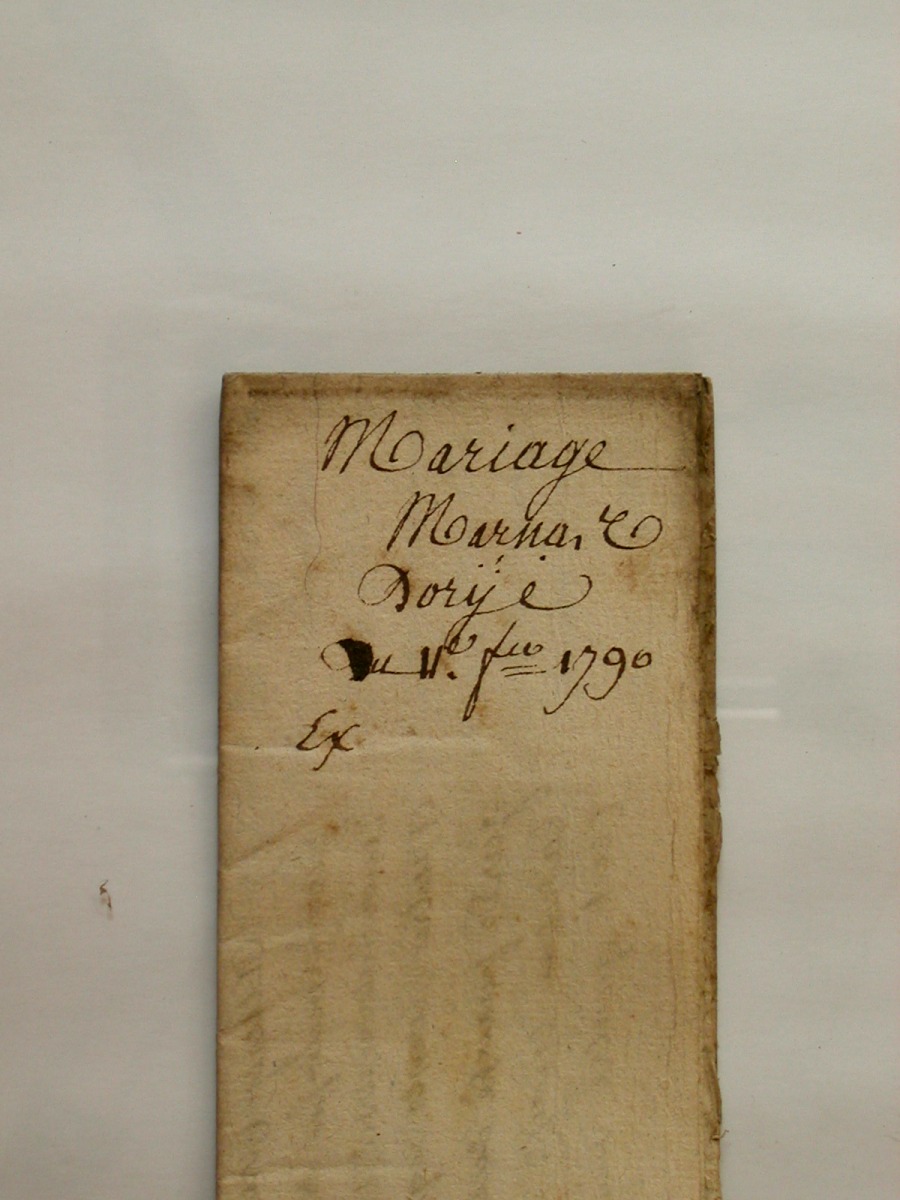 Mariage
Marna. &
Dorÿe
Du 11e. fer 1790
Ex